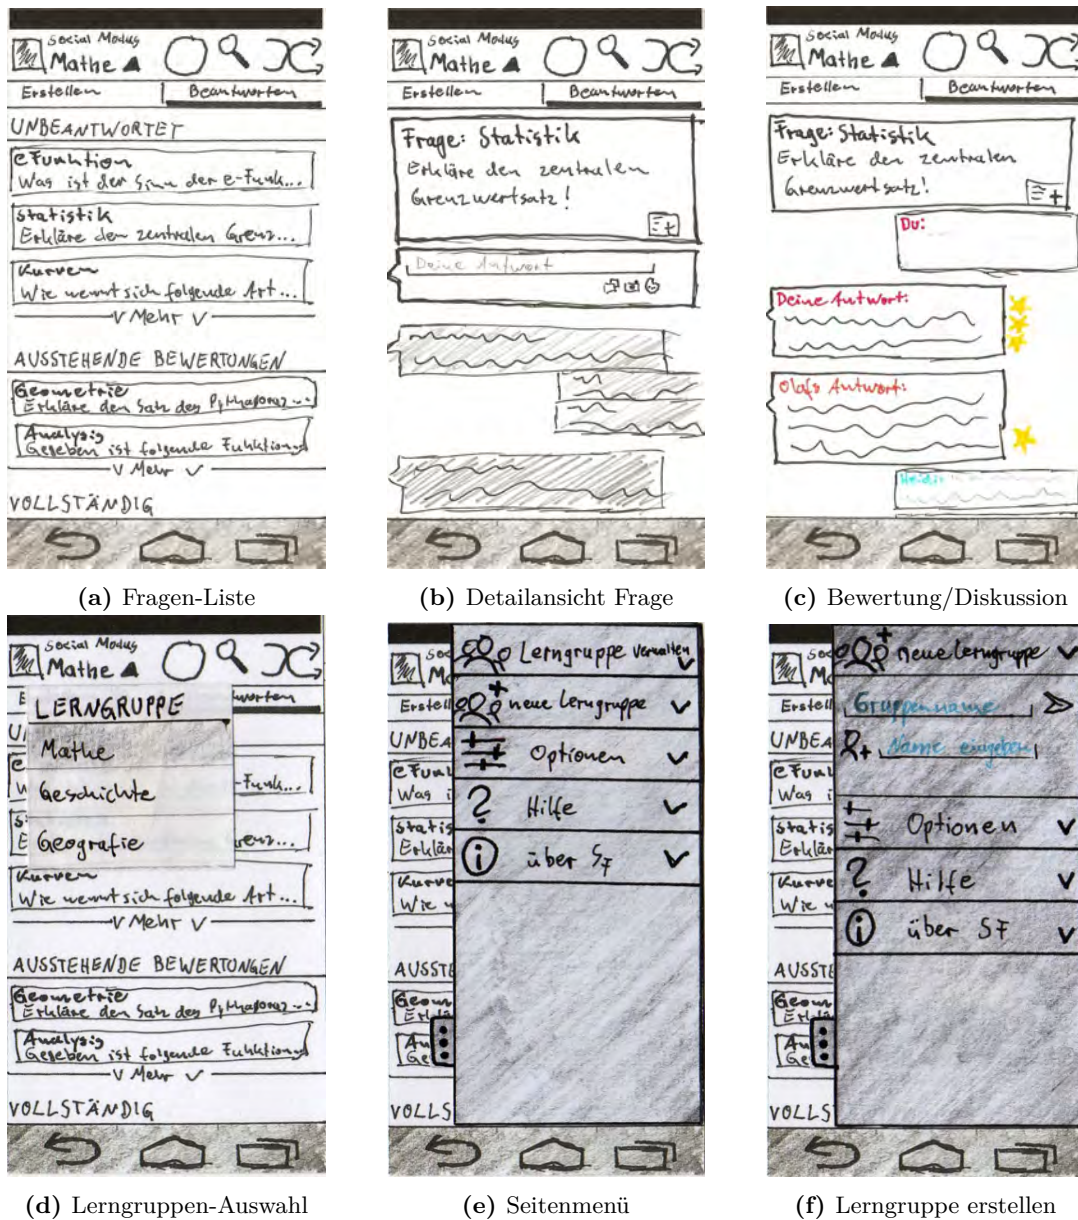 Social Modus
Mathe
Erstellen
Beantworten
UNBEANTWORTET
e Funktion
Was ist der Sinn der e-Funk...
Statistik
Erkläre den zentralen Grenz...
Kurven
Wie nennt sich folgende Art...
Mehr
AUSSTEHENDE BEWERTUNGEN
Geometrie
Erkläre den Satz des Pythagoras...
Analysis
Gegeben ist folgende Funktion
Mehr
VOLLSTÄNDIG
(a) Fragen-Liste
Social Modus
Mathe
Erstellen
Beantworten
Frage: Statistik
Erkläre den zentralen
Grenzwertsatz!
Deine Antwort
(b) Detailansicht Frage
Social Modus
Mathe
Erstellen
Beantworten
Frage: Statistik
Erkläre den zentralen
Grenzwertsatz!
Du:
Deine Antwort:
Olafs Antwort:
Heidi:
(c) Bewertung/Diskussion
Social Modus
Mathe
E
worten
LERNGRUPPE
Mathe
Geschichte
Geografie
-Funk...
renz...
Kurven
Wie nennt sich folgende Art...
Mehr
AUSSTEHENDE BEWERTUNGEN
Geometrie
Erkläre den Satz des Pythagoras...
Analysis
Gegeben ist folgende Funktion
Mehr
VOLLSTÄNDIG
(d) Lerngruppen-Auswahl
Soc
Ma
Erstell
UNBEA
e Funk
Was i
Statis
Erklär
Kurve
Wie n
AUSSTE
Geom
Erklä
An
Ge
VOLLS
Lerngruppe verwalten
neue Lerngruppe
Optionen
Hilfe
über SF
(e) Seitenmenü
Soc
Ma
Erstell
UNBEA
e Funk
Was i
Statis
Erklär
Kurve
Wie n
AUSSTE
Geom
Erklä
An
Ge
VOLLS
neue Lerngruppe
Gruppenname
Name eingeben
Optionen
Hilfe
über SF
(f) Lerngruppe erstellen